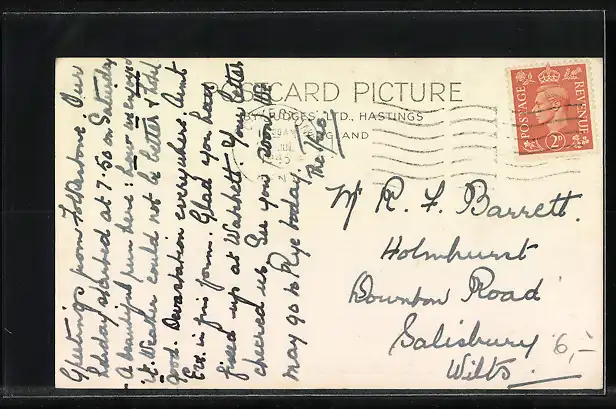 POSTCARD PICTURE
BY JUDGES, LTD., HASTINGS
ENGLAND
POSTAGE
REVENUE
2D
Greetings from Folkestone. Our
holiday started at 7.50 on Saturday
A beautiful run here: how we enjoyed
it. Weather could not be better & Hotel
good. Devastation everywhere. Aunt
Eve. in fine form. Glad you have
fixed up at Watchett. Your letter
cheered us. See you soon. We
may go to Rye today.
Mr R. F. Barrett.
Holmhurst
Bournton Road
Salisbury
Wilts.
6,-